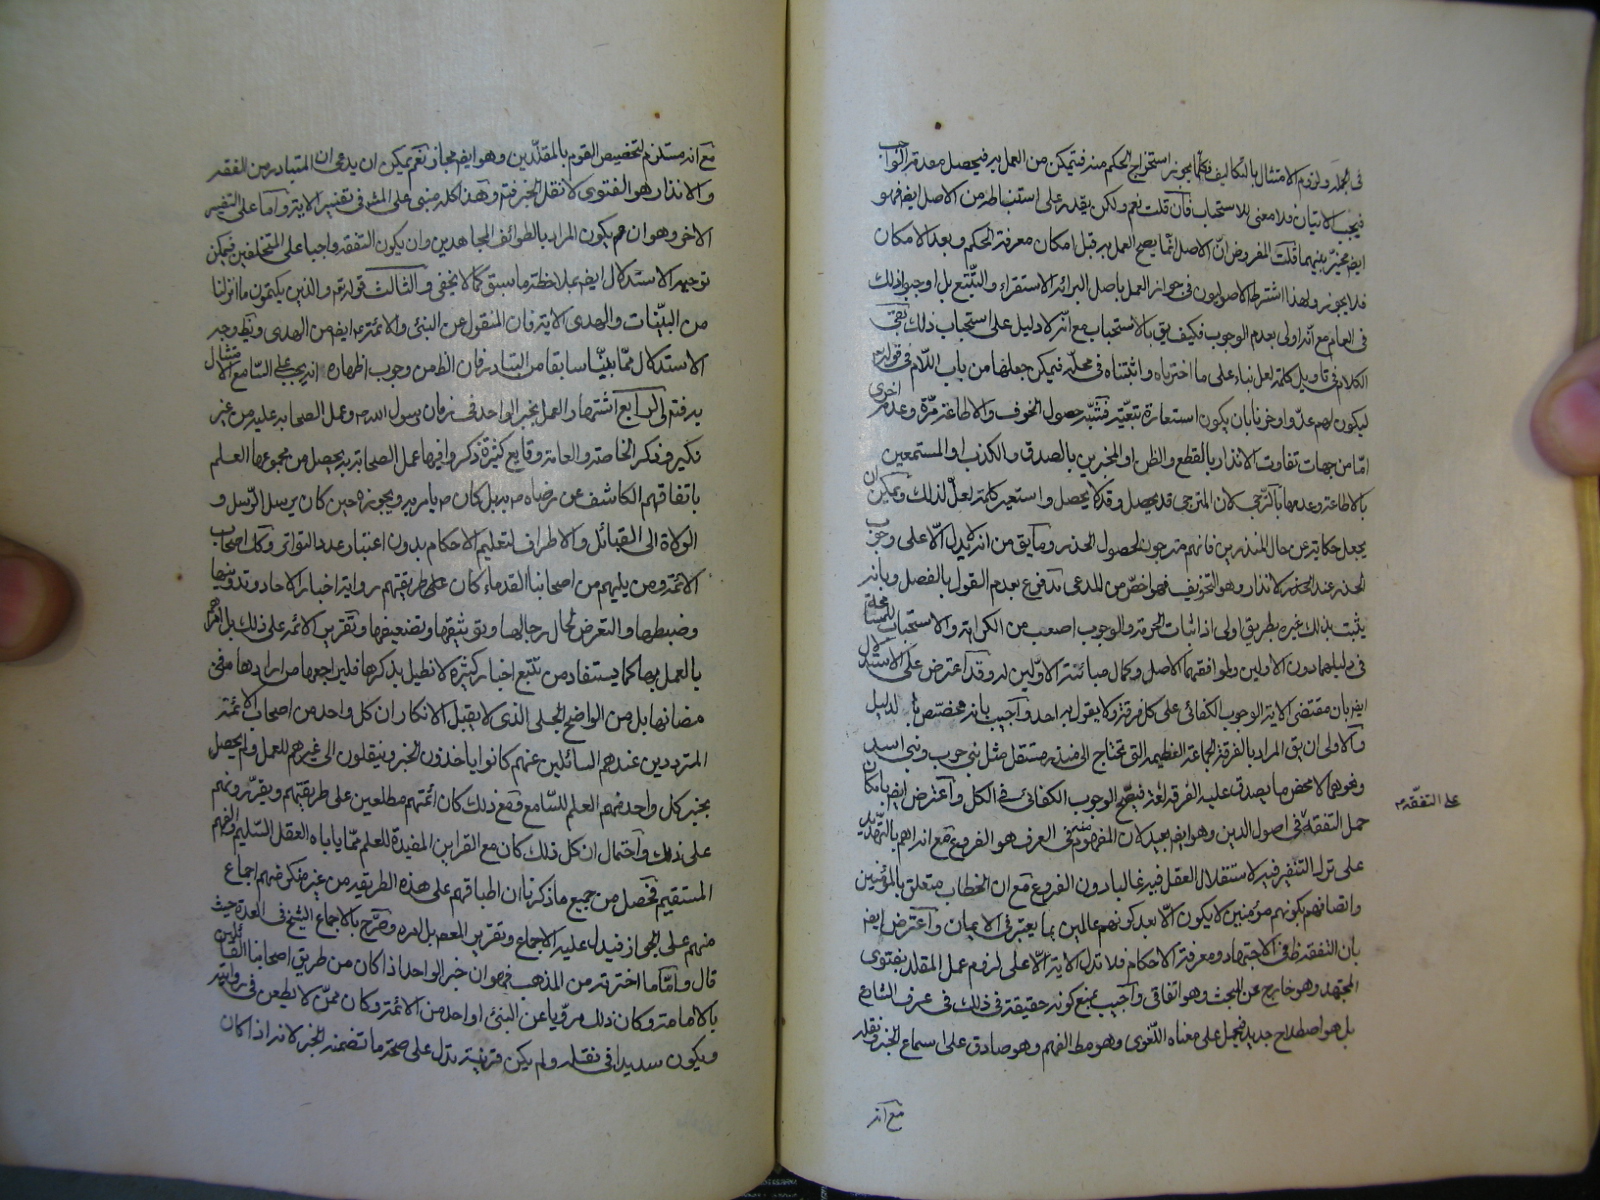 في الجملة ولزوم الامتثال بالتكاليف فكلما يجوز استخراج الحكم منه فيتمكن من العمل به فيحصل مقدمة الواجب
فيجب الاتيان فلا معنى للاستحباب فان قلت نعم ولكن يقدر على استنباطه من الاصل ايضا فهو
ايضا مخير بينهما قلت المفروض ان الاصل انما يصح العمل به قبل امكان معرفة الحكم وبعد الامكان
فلا يجوز ولهذا اشترط الاصوليون في جواز العمل باصل البرائة الاستقراء والتتبع بل اوجبوا ذلك
في العام مع انه اولى بعدم الوجوب فكيف يق بالاستحباب مع انه لا دليل على استحباب ذلك بقي
الكلام في تاويل كلمة لعل بناء على ما اخترناه واثبتناه في محله فيمكن جعلها من باب اللام في قوله تع
ليكون لهم عدوا وحزنا بان يكون استعارة تبعية فشبه حصول الخوف والاطاعة مرة وعدمه اخرى
اما من جهات تفاوت الانذار بالقطع والظن او المخبرين بالصدق والكذب او المستمعين
بالاطاعة وعدمها بالترجي لان المترجى قد يحصل وقد لا يحصل واستعير كلمة لعل لذلك ويمكن ان
يجعل حكاية عن حال المنذرين فانهم مترجون لحصول الحذر وما يق من انه لا يدل الا على وجوب
الحذر عند الحذر لانذار وهو التخويف فهو اخص من المدعى مدفوع بعدم القول بالفصل وبانه
يثبت بذلك غيره بطريق اولى اذ اثبات الحرمة والوجوب اصعب من الكراهة والاستحباب للمسامحة
في دليلهما دون الاولين ولموافقهما الاصل وكمال مباينة الاولين له وقد اعترض على الاستدلال
ايضا بان مقتضى الاية الوجوب الكفائي على كل فرقة ولا يقول به احد واجيب بانه مختص بالدليل
والاولى ان يق المراد بالفرقة الجماعة العظيمة التي تحتاج الى منذر مستقل مثل بني حرب وبني اسد
ونحوهما لا محض ما يصدق عليه الفرقة لغة فيصح الوجوب الكفائي في الكل واعترض ايضا بامكان
حمل التفقه في اصول الدين وهو ايضا بعيد لان المفهوم منه في العرف هو الفروع مع انه اهم بالتهديد
على التفقه
على ترك التنفير فيه لاستقلال العقل فيه غالبا دون الفروع مع ان الخطاب متعلق بالمؤمنين
واتصافهم بكونهم مؤمنين لا يكون الا بعد كونهم عالمين بما يعتبر في الايمان واعترض ايضا
بان التفقه ظ في الاجتهاد ومعرفة الاحكام فلا تدل الاية الا على لزوم عمل المقلد بفتوى
المجتهد وهو خارج عن المبحث وهو اتفاقي واجيب بمنع كونه حقيقة في ذلك في عرف الشارع
بل هو اصطلاح جديد فيحمل على معناه اللغوي وهو مط الفهم وهو صادق على استماع الخبر ونقله
مع انه
مع انه مستلزم لتخصيص القوم بالمقلدين وهو ايضا مجاز نعم يمكن ان يدعى ان المتبادر من الفقه
والانذار هو الفتوى لا نقل الخبر فتم وهذا كله مبني على المش في تفسير الاية واما على التفسير
الاخر وهو ان يكون المراد بالطوائف المجاهدين وان يكون التفقه واجبا على المتخلفين فيمكن
توجيه الاستدلال ايضا بملاحظة ما سبق كما لا يخفى والثالث قوله تع والذين يكتمون ما انزلنا
من البينات والهدى الاية فان المنقول عن النبي والائمة ع ايضا من الهدى ويظ وجه
الاستدلال مما بيناه سابقا من التبادر فان الظ من وجوب اظهاره انه يجب على السامع الامتثال
به فتم الرابع اشتهار العمل بخبر الواحد في زمان رسول الله ص وعمل الصحابة عليه من غير
نكير وذكر الخاصة والعامة وقايع كثيرة ذكروا فيها عمل الصحابة به يحصل من مجموعها العلم
باتفاقهم الكاشف عن رضاه ص بل كان ص يامر به ويجوزه حين كان يرسل الرسل و
الولاة الى القبائل والاطراف لتعليم الاحكام بدون اعتبار عدد التواتر وكك اصحاب
الائمة ومن يليهم من اصحابنا القدماء كان على طريقتهم رواية اخبار الاحاد وتدوينها
وضبطها والتعرض لحال رجالها وتوثيقها وتضعيفها وتقرير الائمة على ذلك بل امرهم
بالعمل بها كما يستفاد من تتبع اخبار كثيرة لا نطيل بذكرها فليراجعها من ارادها من
مضانها بل من الواضح الجلي الذي لا يقبل الانكار ان كل واحد من اصحاب الائمة
المترددين عندهم السائلين عنهم كانوا ياخذون الخبر وينقلون الى غيرهم للعمل ولم يحصل
بخبر كل واحد منهم العلم للسامع فمع ذلك كان ائمتهم مطلعين على طريقتهم ويقررونهم
على ذلك واحتمال ان كل ذلك كان مع القراين المفيدة للعلم مما ياباه العقل السليم والفهم
المستقيم فحصل من جميع ما ذكرنا ان اطباقهم على هذه الطريقة من غير منكر منهم اجماع
منهم على الجواز فيدل عليه الاجماع وتقرير المعصوم بل امره وصرح بالاجماع الشيخ في العدة حيث
قال واما ما اخترته من المذهب فهو ان خبر الواحد اذا كان من طريق اصحابنا القائلين
بالامامة وكان ذلك مرويا عن النبي او احد من الائمة وكان ممن لا يطعن في روايته
ويكون سديدا في نقله ولم يكن قرينة تدل على صحة ما تضمنه الخبر لانه اذا كان